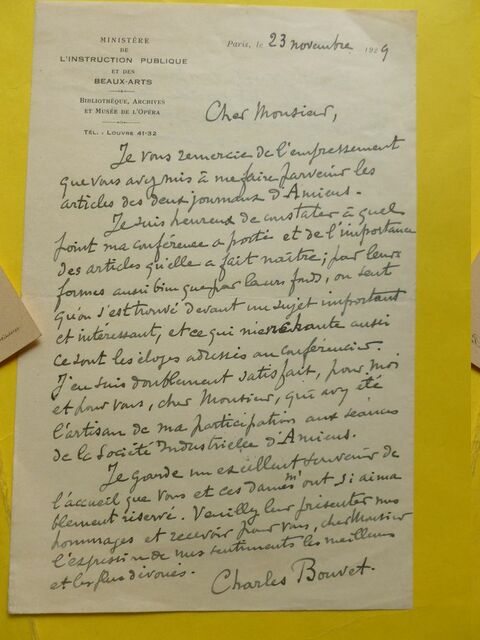 MINISTÈRE
DE
L'INSTRUCTION PUBLIQUE
ET DES
BEAUX-ARTS
BIBLIOTHÈQUE, ARCHIVES
ET MUSÉE DE L'OPÉRA
TÉL. : LOUVRE 41-32
Paris, le 23 novembre 1929
Cher Monsieur,
Je vous remercie de l'empressement
que vous avez mis à me faire parvenir les
articles des deux journaux d'Amiens.
Je suis heureux de constater à quel
point ma conférence a porté et de l'importance
des articles qu'elle a fait naître; par leurs
formes aussi bien que par leurs fond, on sent
qu'on s'est trouvé devant un sujet important
et intéressant, et ce qui m'enchante aussi
ce sont les éloges adressés au conférencier.
J'en suis doublement satisfait, pour moi
et pour vous, cher Monsieur, qui avez été
l'artisan de ma participation aux séances
de la Société Industrielle d'Amiens.
Je garde un excellent souvenir de
l'accueil que vous et ces dames m'ont si aima
blement réservé. Veuillez leur présenter mes
hommages et recevoir pour vous, cher Monsieur
l'expression de mes sentiments les meilleurs
et les plus dévoués.
Charles Bouvet.